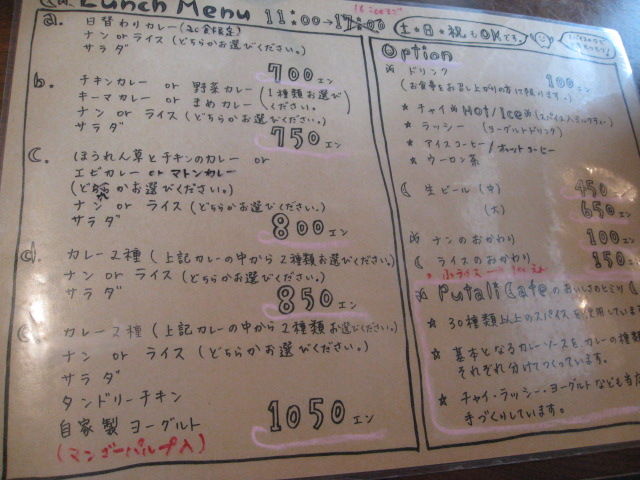 Lunch Menu 11:00→17:00
a. 日替わりカレー(20食限定)
ナン or ライス(どちらかお選びください。)
サラダ
700エン
b. チキンカレー or 野菜カレー(1種類お選び
キーマカレー or まめカレー ください。
ナン or ライス(どちらかお選びください。)
サラダ
750エン
C. ほうれん草とチキンのカレー or
エビカレー or マトンカレー
(どちらかお選びください。)
ナン or ライス(どちらかお選びください。)
サラダ
800エン
d. カレー2種(上記カレーの中から2種類お選びください。)
ナン or ライス(どちらかお選びください。)
サラダ
850エン
カレー2種(上記カレーの中から2種類お選びください。)
ナン or ライス(どちらかお選びください。)
サラダ
タンドリーチキン
自家製ヨーグルト
(マンゴーパルプ入)
1050エン
土・日・祝もOKです。
Option
ドリンク 100エン
(お食事をお召し上がりの方に限ります。)
☆ チャイ Hot/Ice(スパイス入ミルクティー)
☆ ラッシー (ヨーグルトドリンク)
☆ アイスコーヒー/ホットコーヒー
☆ ウーロン茶
生ビール(中) 450
(大) 650エン
ナンのおかわり 100エン
ライスのおかわり 150エン
Putali Cafeのおいしさのヒミツ
☆ 30種類以上のスパイスを使用しています
☆ 基本となるカレーソースをカレーの種類
それぞれ分けてつくっています。
☆ チャイ・ラッシー・ヨーグルトなども当
手づくりしています。